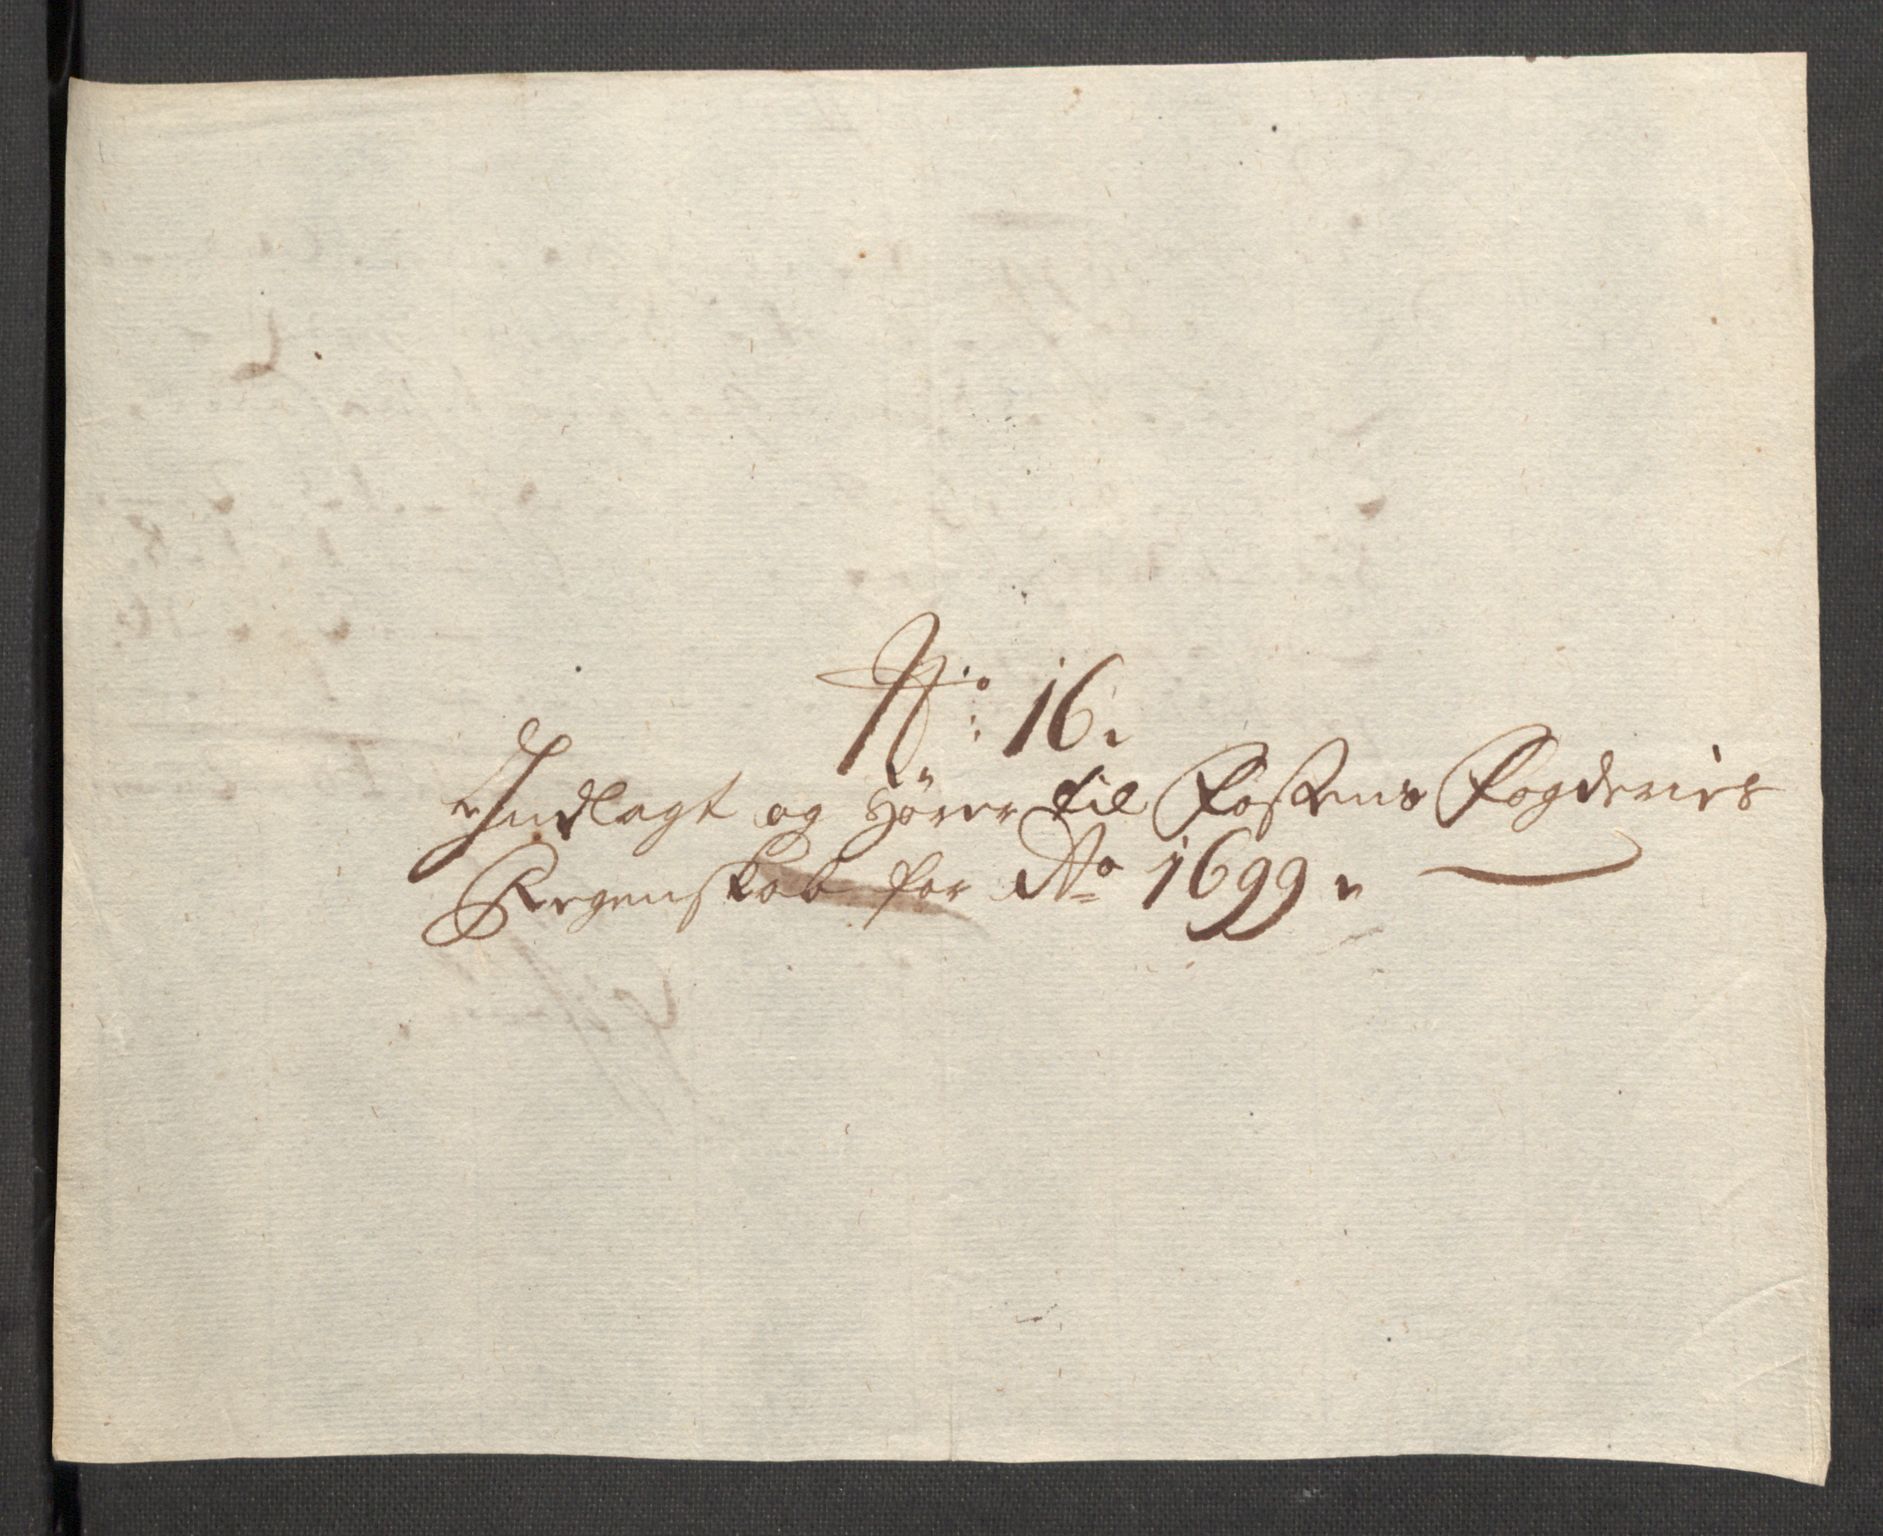 No: 16.
Indlagt og Hører til Fosens Fogderies
Regenskab for Ao 1699.